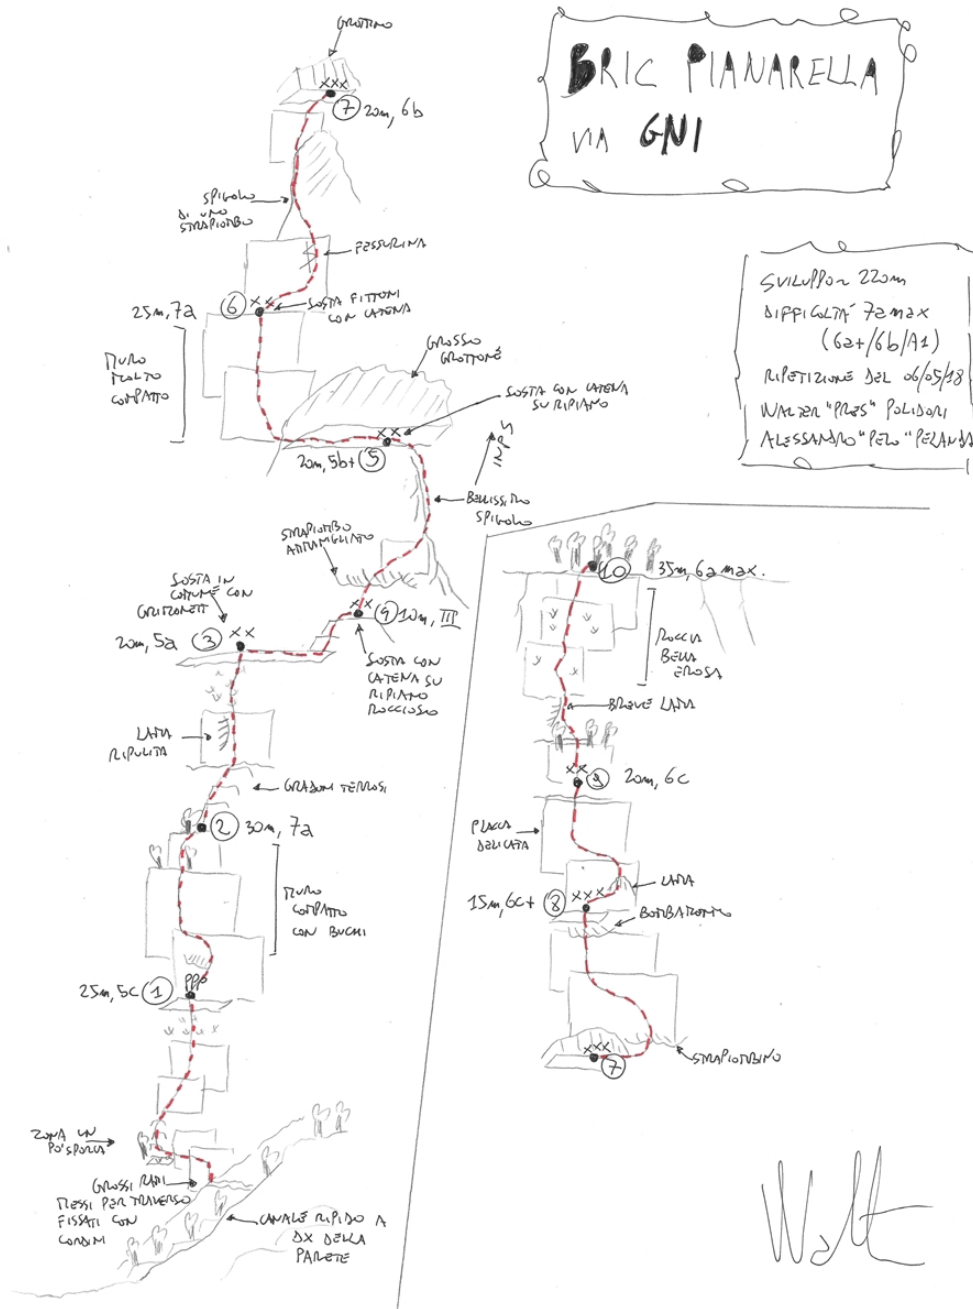 BRIC PIANARELLA
VIA GNI
SVILUPPO ~ 220m
DIFFICOLTÀ 7a max
(6a+/6b/A1)
RIPETIZIONE DEL 06/05/18
WALTER "PRES" POLIDORI
ALESSANDRO "PELO" PELANDA
GROTTINO
7 20m, 6b
SPIGOLO
DI UNO
STRAPIOMBO
FESSURINA
25m, 7a 6
SOSTA FITTONI
CON CATENA
MURO
MOLTO
COMPATTO
GROSSO
GROTTONE
SOSTA CON CATENA
SU RIPIANO
20m, 5b+ 5
INPS
BELLISSIMO
SPIGOLO
STRAPIOMBO
AMMANIGLIATO
SOSTA IN
COMUNE CON
GRIMONETT
20m, 5a 3
4 10m, III
SOSTA CON
CATENA SU
RIPIANO
ROCCIOSO
LAMA
RIPULITA
GRADONI TERROSI
2 30m, 7a
MURO
COMPATTO
CON BUCHI
25m, 5c 1
ZONA UN
PO' SPORCA
GROSSI RAMI
MESSI PER TRAVERSO
FISSATI CON
CORDINI
CANALE RIPIDO A
DX DELLA
PARETE
10 35m, 6a max.
ROCCIA
BELLA
EROSA
BREVE LAMA
9 20m, 6c
PLACCA
DELICATA
LAMA
15m, 6c+ 8
BOMBAMENTO
STRAPIOMBINO
7
Walt